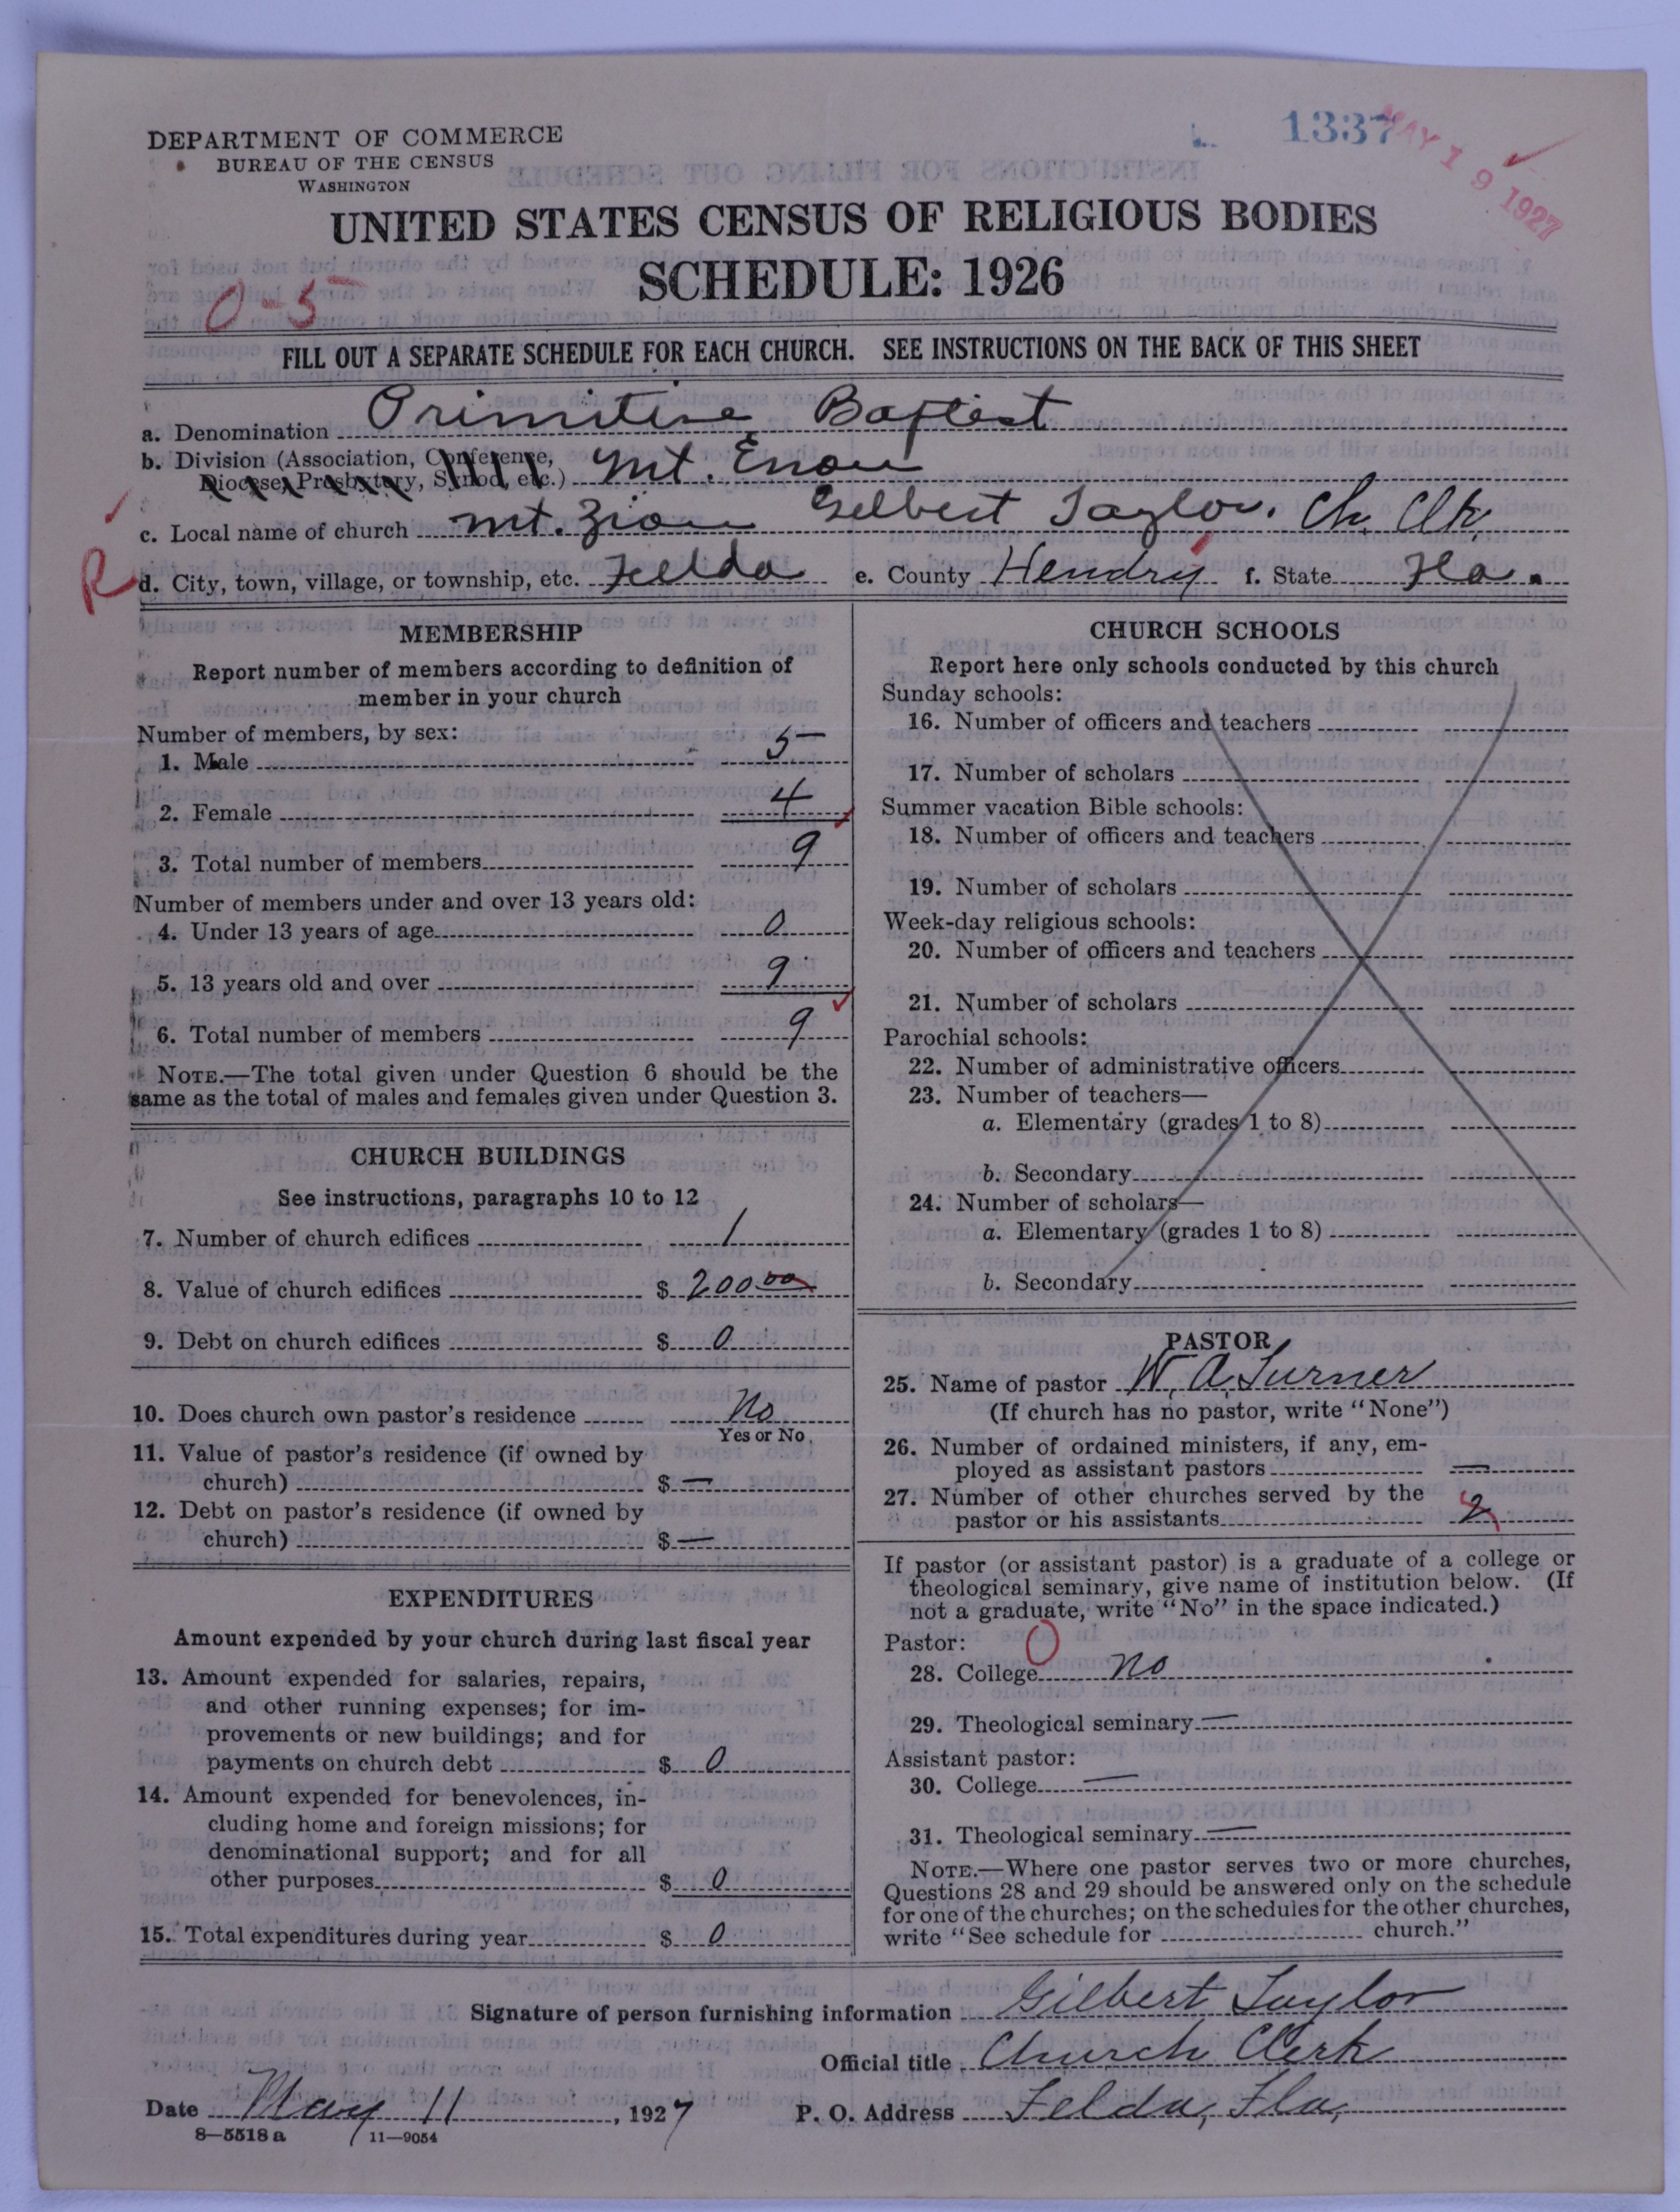 1337
MAY 19 1927
DEPARTMENT OF COMMERCE
BUREAU OF THE CENSUS
WASHINGTON
UNITED STATES CENSUS OF RELIGIOUS BODIES
SCHEDULE: 1926
0-5
FILL OUT A SEPARATE SCHEDULE FOR EACH CHURCH. SEE INSTRUCTIONS ON THE BACK OF THIS SHEET
a. Denomination Primitive Baptist
b. Division (Association, Conference,
Diocese, Presbytery, Synod, etc.) Mt. Enon
c. Local name of church Mt. Zion Gelbert Taylor. Ch. Clk.
R
d. City, town, village, or township, etc. Felda e. County Hendry f. State Fla.
MEMBERSHIP
Report number of members according to definition of
member in your church
Number of members, by sex:
1. Male 5
2. Female 4
3. Total number of members 9
Number of members under and over 13 years old:
4. Under 13 years of age 0
5. 13 years old and over 9
6. Total number of members 9
NOTE.—The total given under Question 6 should be the
same as the total of males and females given under Question 3.
CHURCH BUILDINGS
See instructions, paragraphs 10 to 12
7. Number of church edifices 1
8. Value of church edifices $ 200 00
9. Debt on church edifices $ 0
10. Does church own pastor's residence No
Yes or No
11. Value of pastor's residence (if owned by
church) $ —
12. Debt on pastor's residence (if owned by
church) $ —
EXPENDITURES
Amount expended by your church during last fiscal year
13. Amount expended for salaries, repairs,
and other running expenses; for im-
provements or new buildings; and for
payments on church debt $ 0
14. Amount expended for benevolences, in-
cluding home and foreign missions; for
denominational support; and for all
other purposes $ 0
15. Total expenditures during year $ 0
CHURCH SCHOOLS
Report here only schools conducted by this church
Sunday schools:
16. Number of officers and teachers
17. Number of scholars
Summer vacation Bible schools:
18. Number of officers and teachers
19. Number of scholars
Week-day religious schools:
20. Number of officers and teachers
21. Number of scholars
Parochial schools:
22. Number of administrative officers
23. Number of teachers—
a. Elementary (grades 1 to 8)
b. Secondary
24. Number of scholars—
a. Elementary (grades 1 to 8)
b. Secondary
PASTOR
25. Name of pastor W. A. Turner
(If church has no pastor, write "None")
26. Number of ordained ministers, if any, em-
ployed as assistant pastors —
27. Number of other churches served by the
pastor or his assistants 2
If pastor (or assistant pastor) is a graduate of a college or
theological seminary, give name of institution below. (If
not a graduate, write "No" in the space indicated.)
Pastor: 0
28. College No
29. Theological seminary —
Assistant pastor:
30. College —
31. Theological seminary —
NOTE.—Where one pastor serves two or more churches,
Questions 28 and 29 should be answered only on the schedule
for one of the churches; on the schedules for the other churches,
write "See schedule for church."
Signature of person furnishing information Gilbert Taylor
Official title Church Clerk
Date May 11, 1927 P. O. Address Felda, Fla,
8—5518 a 11—9054